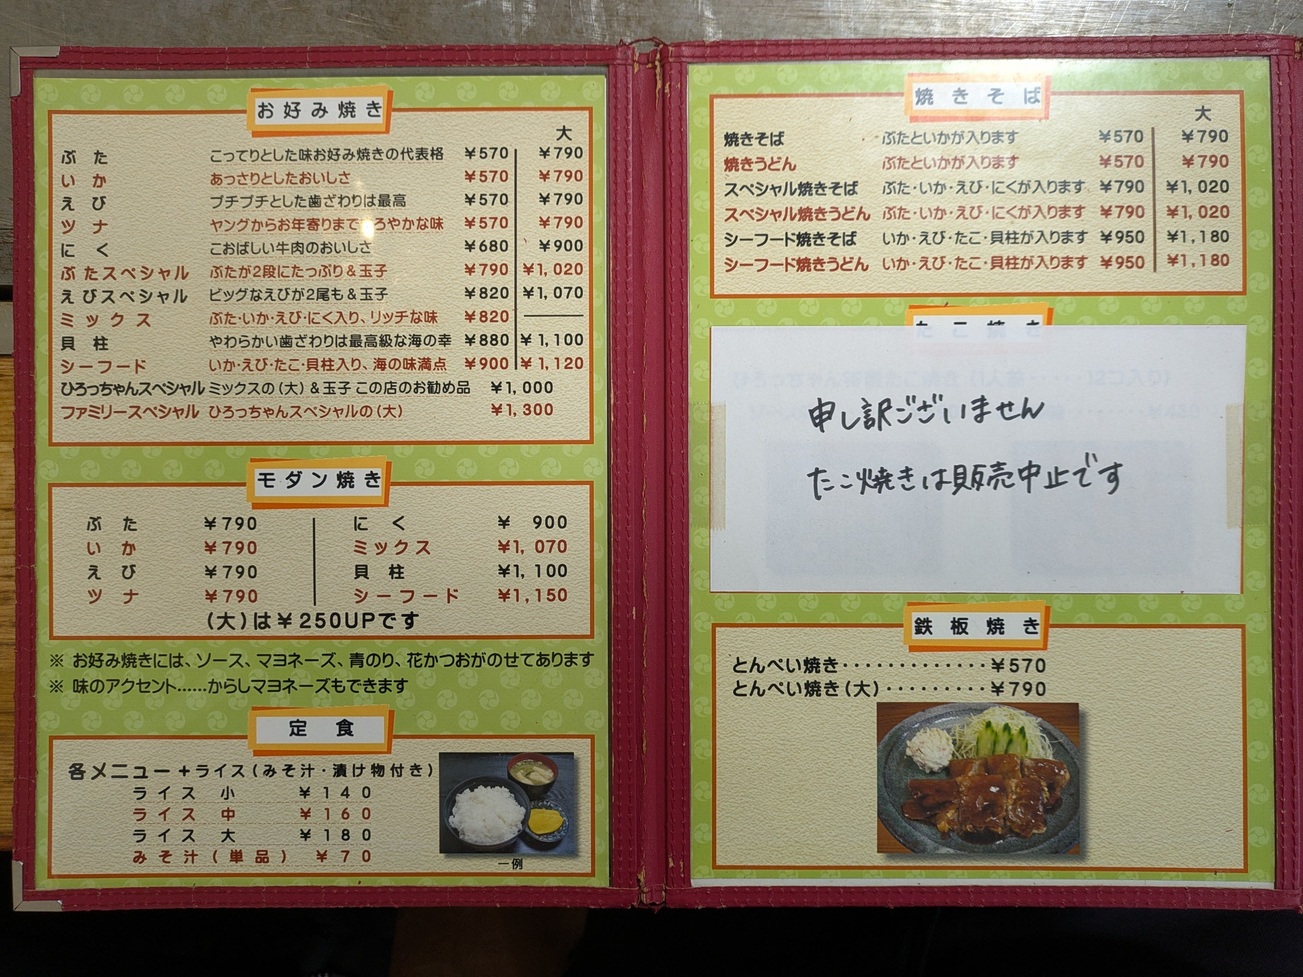 お好み焼き
大
ぶた こってりとした味お好み焼きの代表格 ¥570 ¥790
いか あっさりとしたおいしさ ¥570 ¥790
えび プチプチとした歯ざわりは最高 ¥570 ¥790
ツナ ヤングからお年寄りまで ろやかな味 ¥570 ¥790
にく こおばしい牛肉のおいしさ ¥680 ¥900
ぶたスペシャル ぶたが2段にたっぷり&玉子 ¥790 ¥1,020
えびスペシャル ビッグなえびが2尾も&玉子 ¥820 ¥1,070
ミックス ぶた・いか・えび・にく入り、リッチな味 ¥820
貝柱 やわらかい歯ざわりは最高級な海の幸 ¥880 ¥1,100
シーフード いか・えび・たこ・貝柱入り、海の味満点 ¥900 ¥1,120
ひろっちゃんスペシャル ミックスの(大)&玉子 この店のお勧め品 ¥1,000
ファミリースペシャル ひろっちゃんスペシャルの(大) ¥1,300
モダン焼き
ぶた ¥790 にく ¥900
いか ¥790 ミックス ¥1,070
えび ¥790 貝柱 ¥1,100
ツナ ¥790 シーフード ¥1,150
(大)は¥250UPです
※ お好み焼きには、ソース、マヨネーズ、青のり、花かつおがのせてあります
※ 味のアクセント……からしマヨネーズもできます
定食
各メニュー+ライス(みそ汁・漬け物付き)
ライス 小 ¥140
ライス 中 ¥160
ライス 大 ¥180
みそ汁(単品) ¥70
一例
焼きそば
大
焼きそば ぶたといかが入ります ¥570 ¥790
焼きうどん ぶたといかが入ります ¥570 ¥790
スペシャル焼きそば ぶた・いか・えび・にくが入ります ¥790 ¥1,020
スペシャル焼きうどん ぶた・いか・えび・にくが入ります ¥790 ¥1,020
シーフード焼きそば いか・えび・たこ・貝柱が入ります ¥950 ¥1,180
シーフード焼きうどん いか・えび・たこ・貝柱が入ります ¥950 ¥1,180
たこ焼き
申し訳ございません
たこ焼きは販売中止です
鉄板焼き
とんぺい焼き・・・・・・・・・・・・・¥570
とんぺい焼き(大)・・・・・・・・・¥790